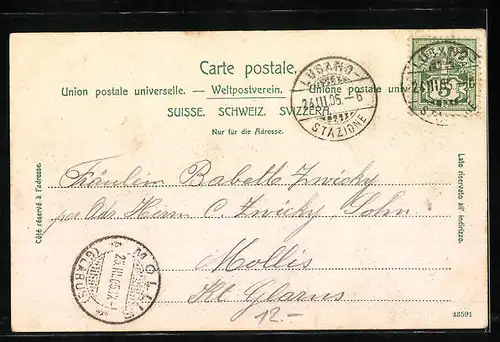 Carte postale.
Union postale universelle. — Weltpostverein. — Unione postale universale
SUISSE. SCHWEIZ. SVIZZERA.
Nur für die Adresse.
LUGANO
24.III.05.–6
STAZIONE
LUGANO
24.III.05.–6
5
Côté réservé à l'adresse.
Lato riservato all' indirizzo.
Fräulein Babette Zwicky
per Adr. Herrn C. Zwicky Sohn
Mollis
Kt. Glarus
12.-
MOLLIS
(GLARUS)
43591